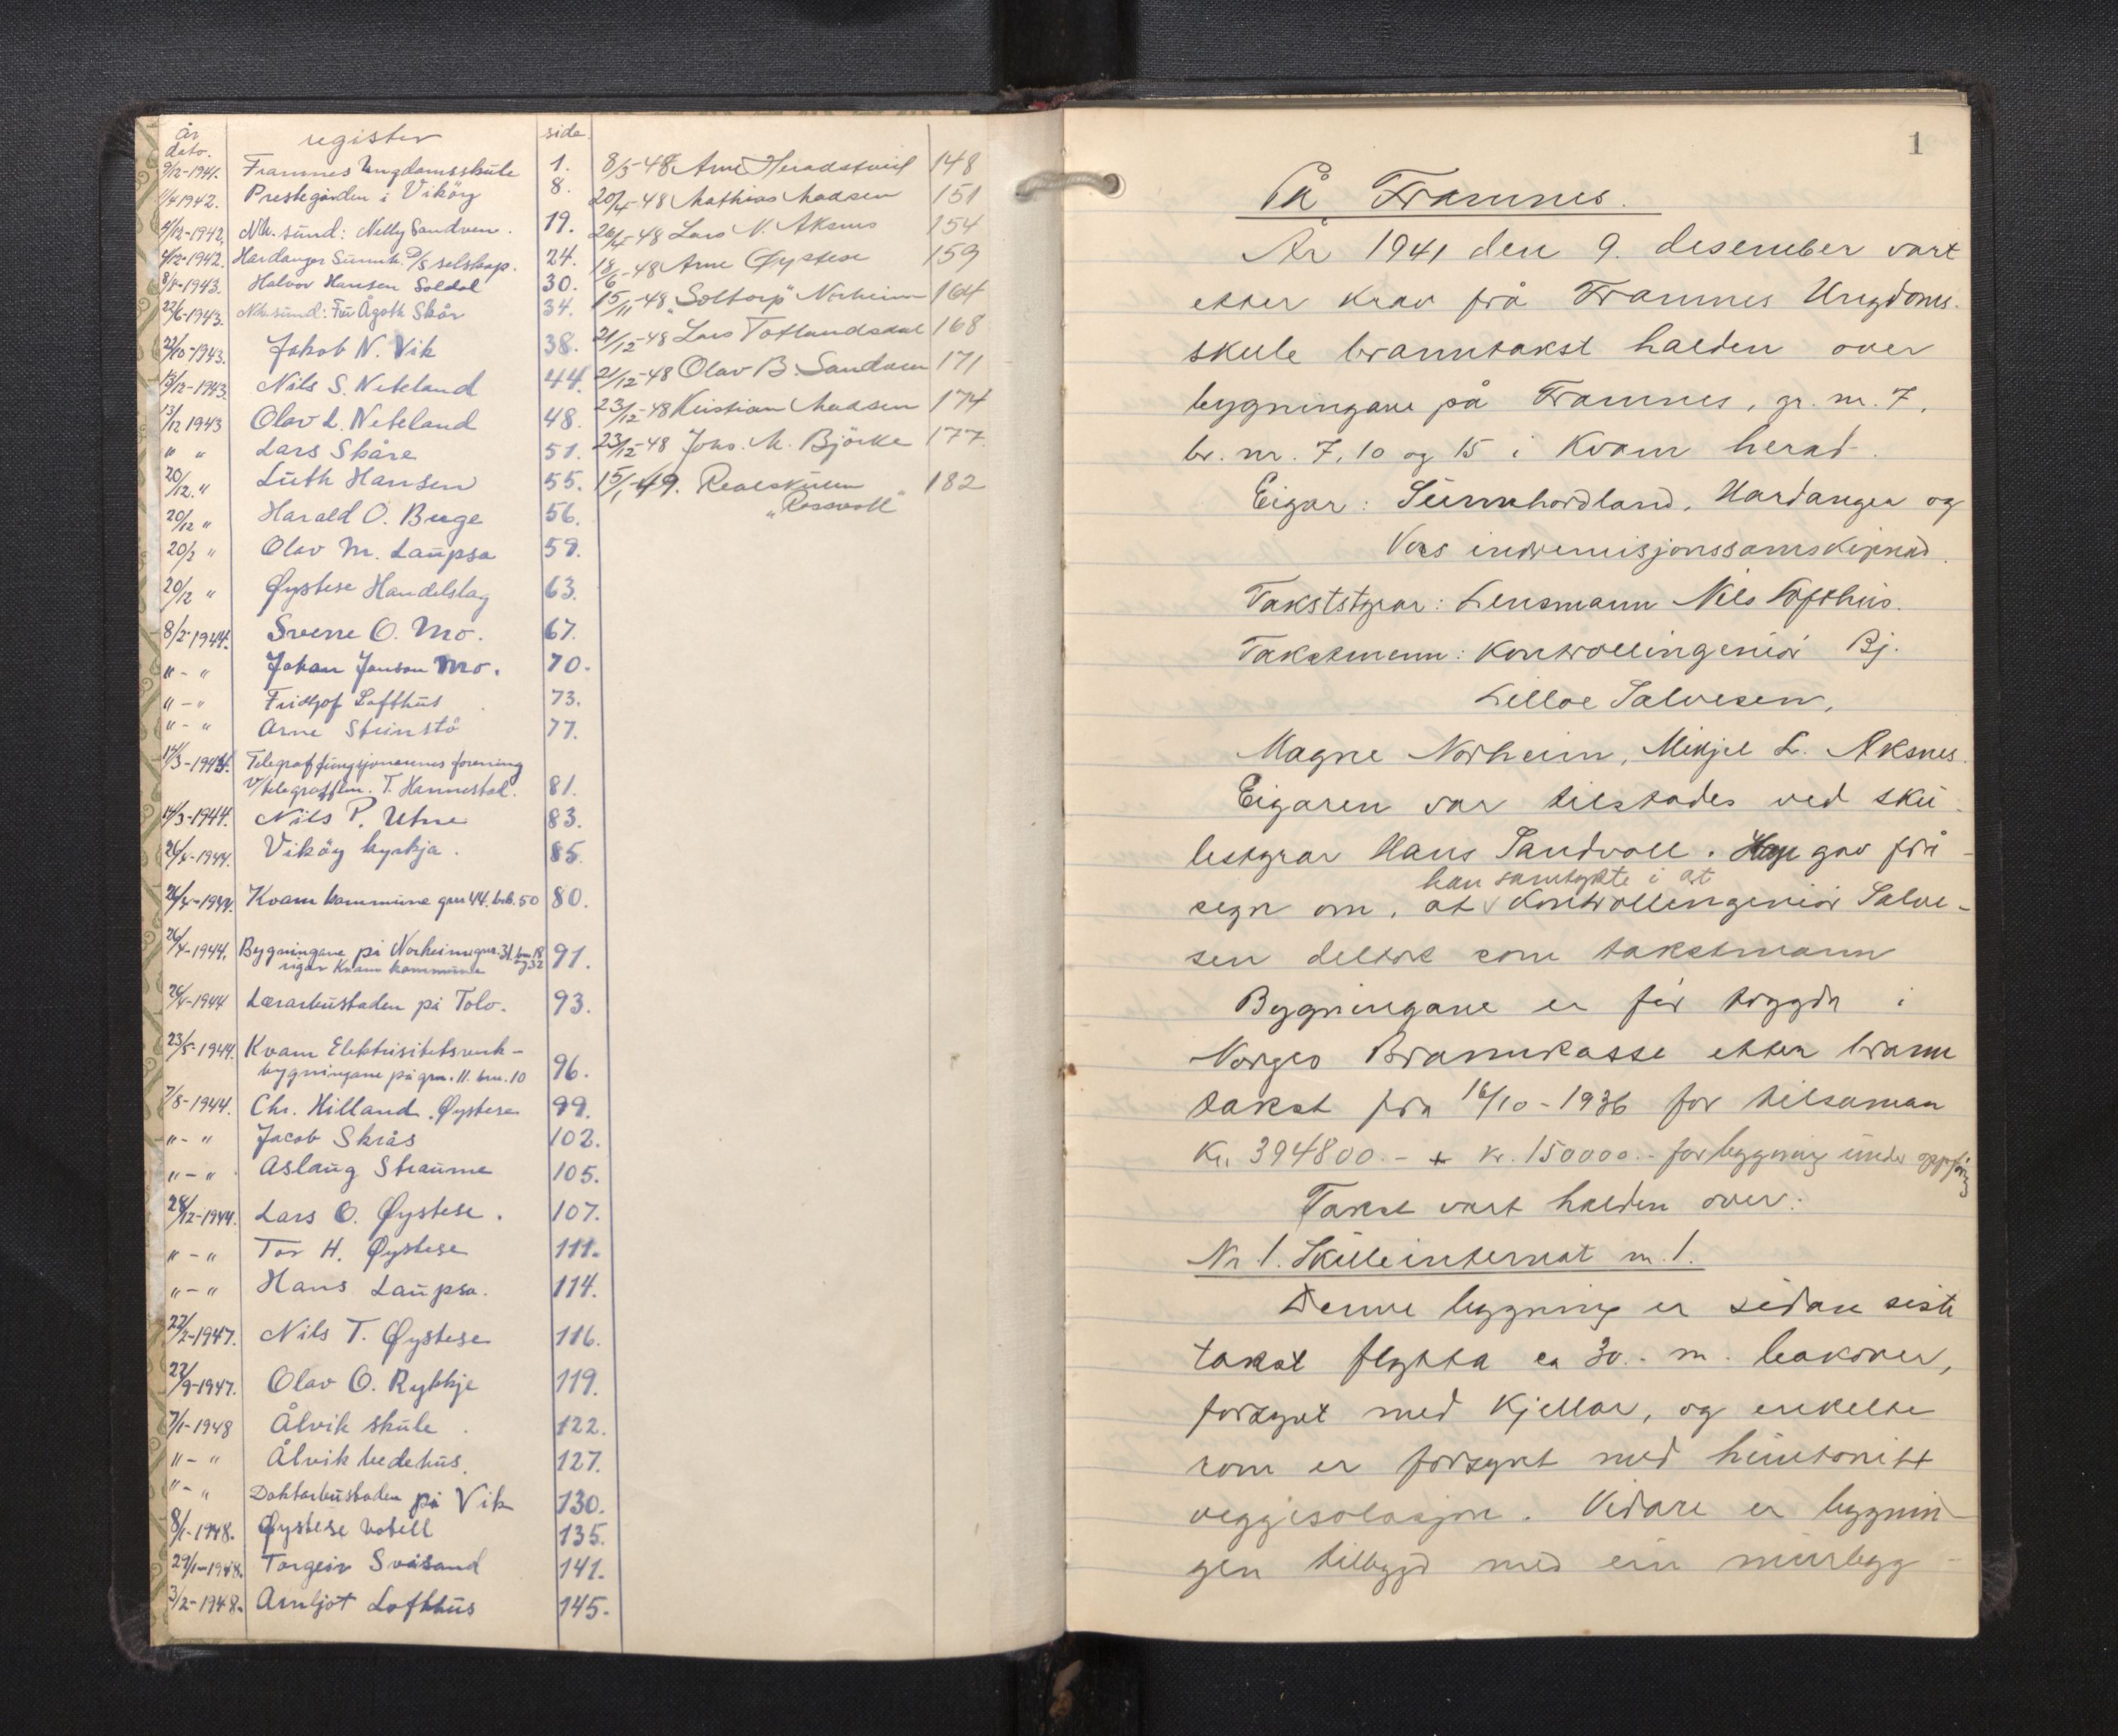 år
dato. register side.
9/12-1941. Framnes Ungdomsskule 1.
1/4 1942. Prestegården i Vikøy 8.
4/12-1942. N.k. sund: Nelly Sandven. 19.
4/12-1942. Hardanger Sunnh. D/S selskap. 24.
8/5-1943. Halvor Hansen Soldal 30.
22/6-1943. N.k. sund: Frü Ågoth Skår 34.
22/10-1943. Jakob N. Vik 38.
13/12-1943. Nils S. Neteland 44.
13/12 1943 Olav L. Neteland 48.
" " Lars Skåre 51.
20/12. " Luth Hansen 55.
20/12 " Harald O. Berge 56.
20/2 " Olav M. Laupsa 59.
20/12 " Øystese Handelslag 63.
8/2-1944. Sverre O. Mo. 67.
" - " Johan Jonson Mo. 70.
" - " Fridtjof Lofthus 73.
" - " Arne Steinstö 77.
14/3-1944. Telegraffungsjonærnes forening
v/telegraffm. T. Hannestad. 81.
14/3-1944. Nils P. Utne 83.
26/4-1944. Vikøy kyrkja. 85.
26/4-1944. Kvam kommune gnr 44. b.nr. 50 80.
26/4-1944. Bygningane på Norheim gnr. 31. bnr 18 og 32
eigar Kvam kommune 91.
26/4-1944 Lærarbustaden på Tolo. 93.
23/5-1944. Kvam Elektrisitetsverk-
bygningane på gnr. 11. bnr. 10 96.
7/8-1944. Chr. Hilland. Øystese 99.
" - " Jacob Skrås 102.
" - " Aslaug Straume 105.
28/12-1944. Lars O. Øystese. 107.
" - " Tor H. Øystese 111.
" - " Hans Laupsa. 114.
22/2-1947. Nils T. Øystese 116.
22/9-1947. Olav O. Rykkje 119.
7/1-1948 Ålvik skule. 122.
" - " Ålvik bedehus. 127.
" - " Doktorbustaden på Vik 130.
8/1-1948. Øystese hotell 135.
29/1-1948. Torgeir Svåsand 141.
3/2-1948. Arnljot Lofthus 145.
8/3-48 Arne Heradstveit 148
20/4-48 Mathias Madsen 151
26/4-48 Lars N. Aksnes 154
18/6-48 Arne Øystese 159
15/11-48 "Soltorp" Norheim 164
21/12-48 Lars Totlandsdal 168
21/12-48 Olav B. Sandven 171
23/12-48 Kristian Madsen 174
23/12-48 Johs. M. Björke 177
15/1-49. Realskulen 182
"Rossvoll"
1
På Framnes.
År 1941 den 9. desember vart
etter krav frå Framnes Ungdoms-
skule branntakst halden over
bygningane på Framnes, gr. nr. 7,
br. nr. 7, 10 og 15 i Kvam herad.
Eigar: Sunnhordland, Hardanger og
Voss indremisjonssamskipnad.
Takststyrar: Lensmann Nils Lofthus.
Takstmenn: Kontrollingeniör Bj.
Lilloe Salvesen,
Magne Norheim, Mikjel L. Aksnes.
Eigaren var tilstades ved sku-
lestyrar Hans Sandvoll. Han gav frå-
han samtykte i at
segn om, at kontrollingeniör Salve-
sen deltok som takstmann
Bygningane er för trygda i
Norges Brannkasse etter brann
takst frå 16/10-1936 for tilsaman
Kr. 394800.- + kr. 150000.- for bygning under oppföring
Takst vart halden over:
Nr 1. Skuleinternat nr. 1.
Denne bygning er sidan siste
takst flytta ca 30.- m. bakover,
forsynt med kjellar, og enkelte
rom er forsynt med huntonitt
veggisolasjon. Vidare er bygnin-
gen tilbygd med ein murbygg-